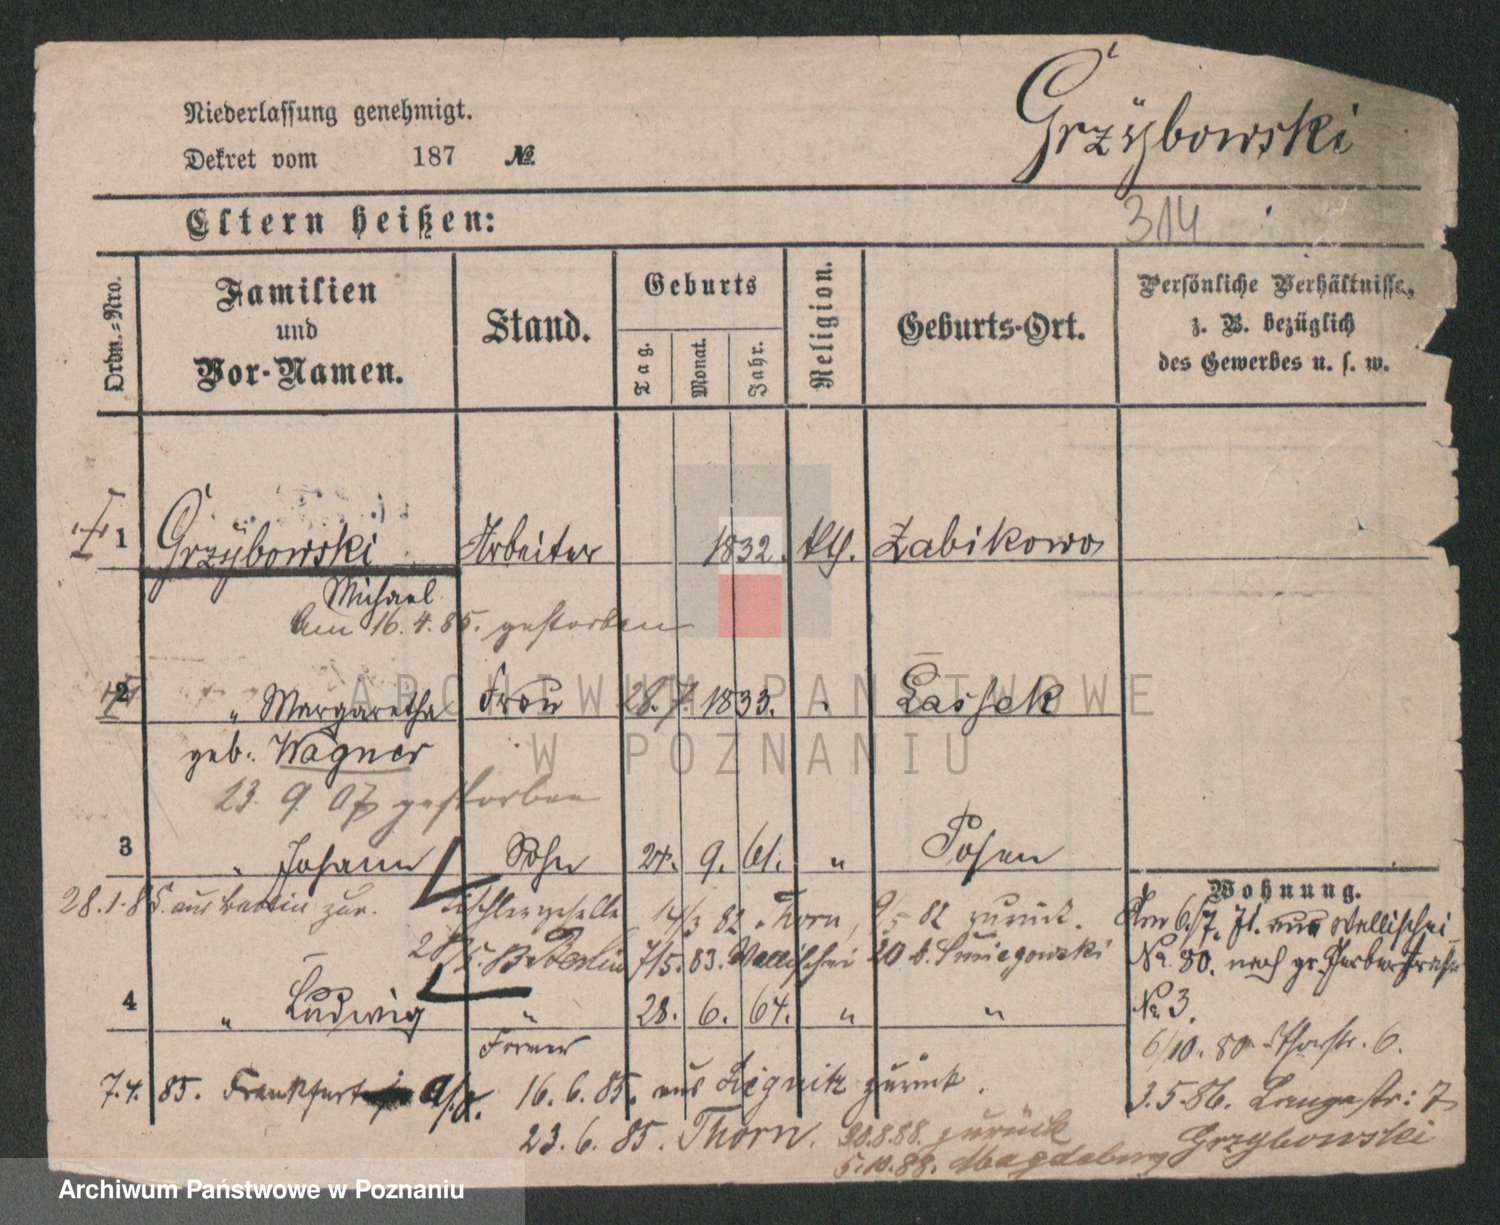 Niederlassung genehmigt.
Dekret vom 187 №
Grzÿbowski
Eltern heißen:
314
Ordn.-Nro.
Familien
und
Vor-Namen.
Stand.
Geburts
Tag.
Monat.
Jahr.
Religion.
Geburts-Ort.
Persönliche Verhältnisse,
z. B. bezüglich
des Gewerbes u. s. w.
1 Grzÿbowski Arbeiter 1832. kth. Zabikowo
Michael
Am 16. 4. 85. gestorben
2 " Margaretha Frau 28. 7. 1833. Lassek
geb. Wagner
23. 9. 07 gestorben
3 " Johann Sohn 24. 9. 61. " Posen
Wohnung.
28.1.85. aus Berlin zur. Tischlergeselle 14/3 82. Thorn, 9/5 82 zurück.
Am 6./7. 71. aus Wallischei
28/5. Berlin 7/5. 83. Wallischei 20 b. Sniegowski
No. 80. nach gr. Gerberstraße
4 " Ludwig " 28. 6. 64. " "
No. 3.
Former
6/10. 80 6.
7.4. 85. Frankfurt a/O. 16. 6. 85. aus Liegnitz zurück.
3.5.86. Langestr: 7
23. 6. 85. Thorn. 30.8.88. zurück
Grzybowski
5.10.88. Magdeburg
ARCHIWUM PAŃSTWOWE
W POZNANIU
Archiwum Państwowe w Poznaniu